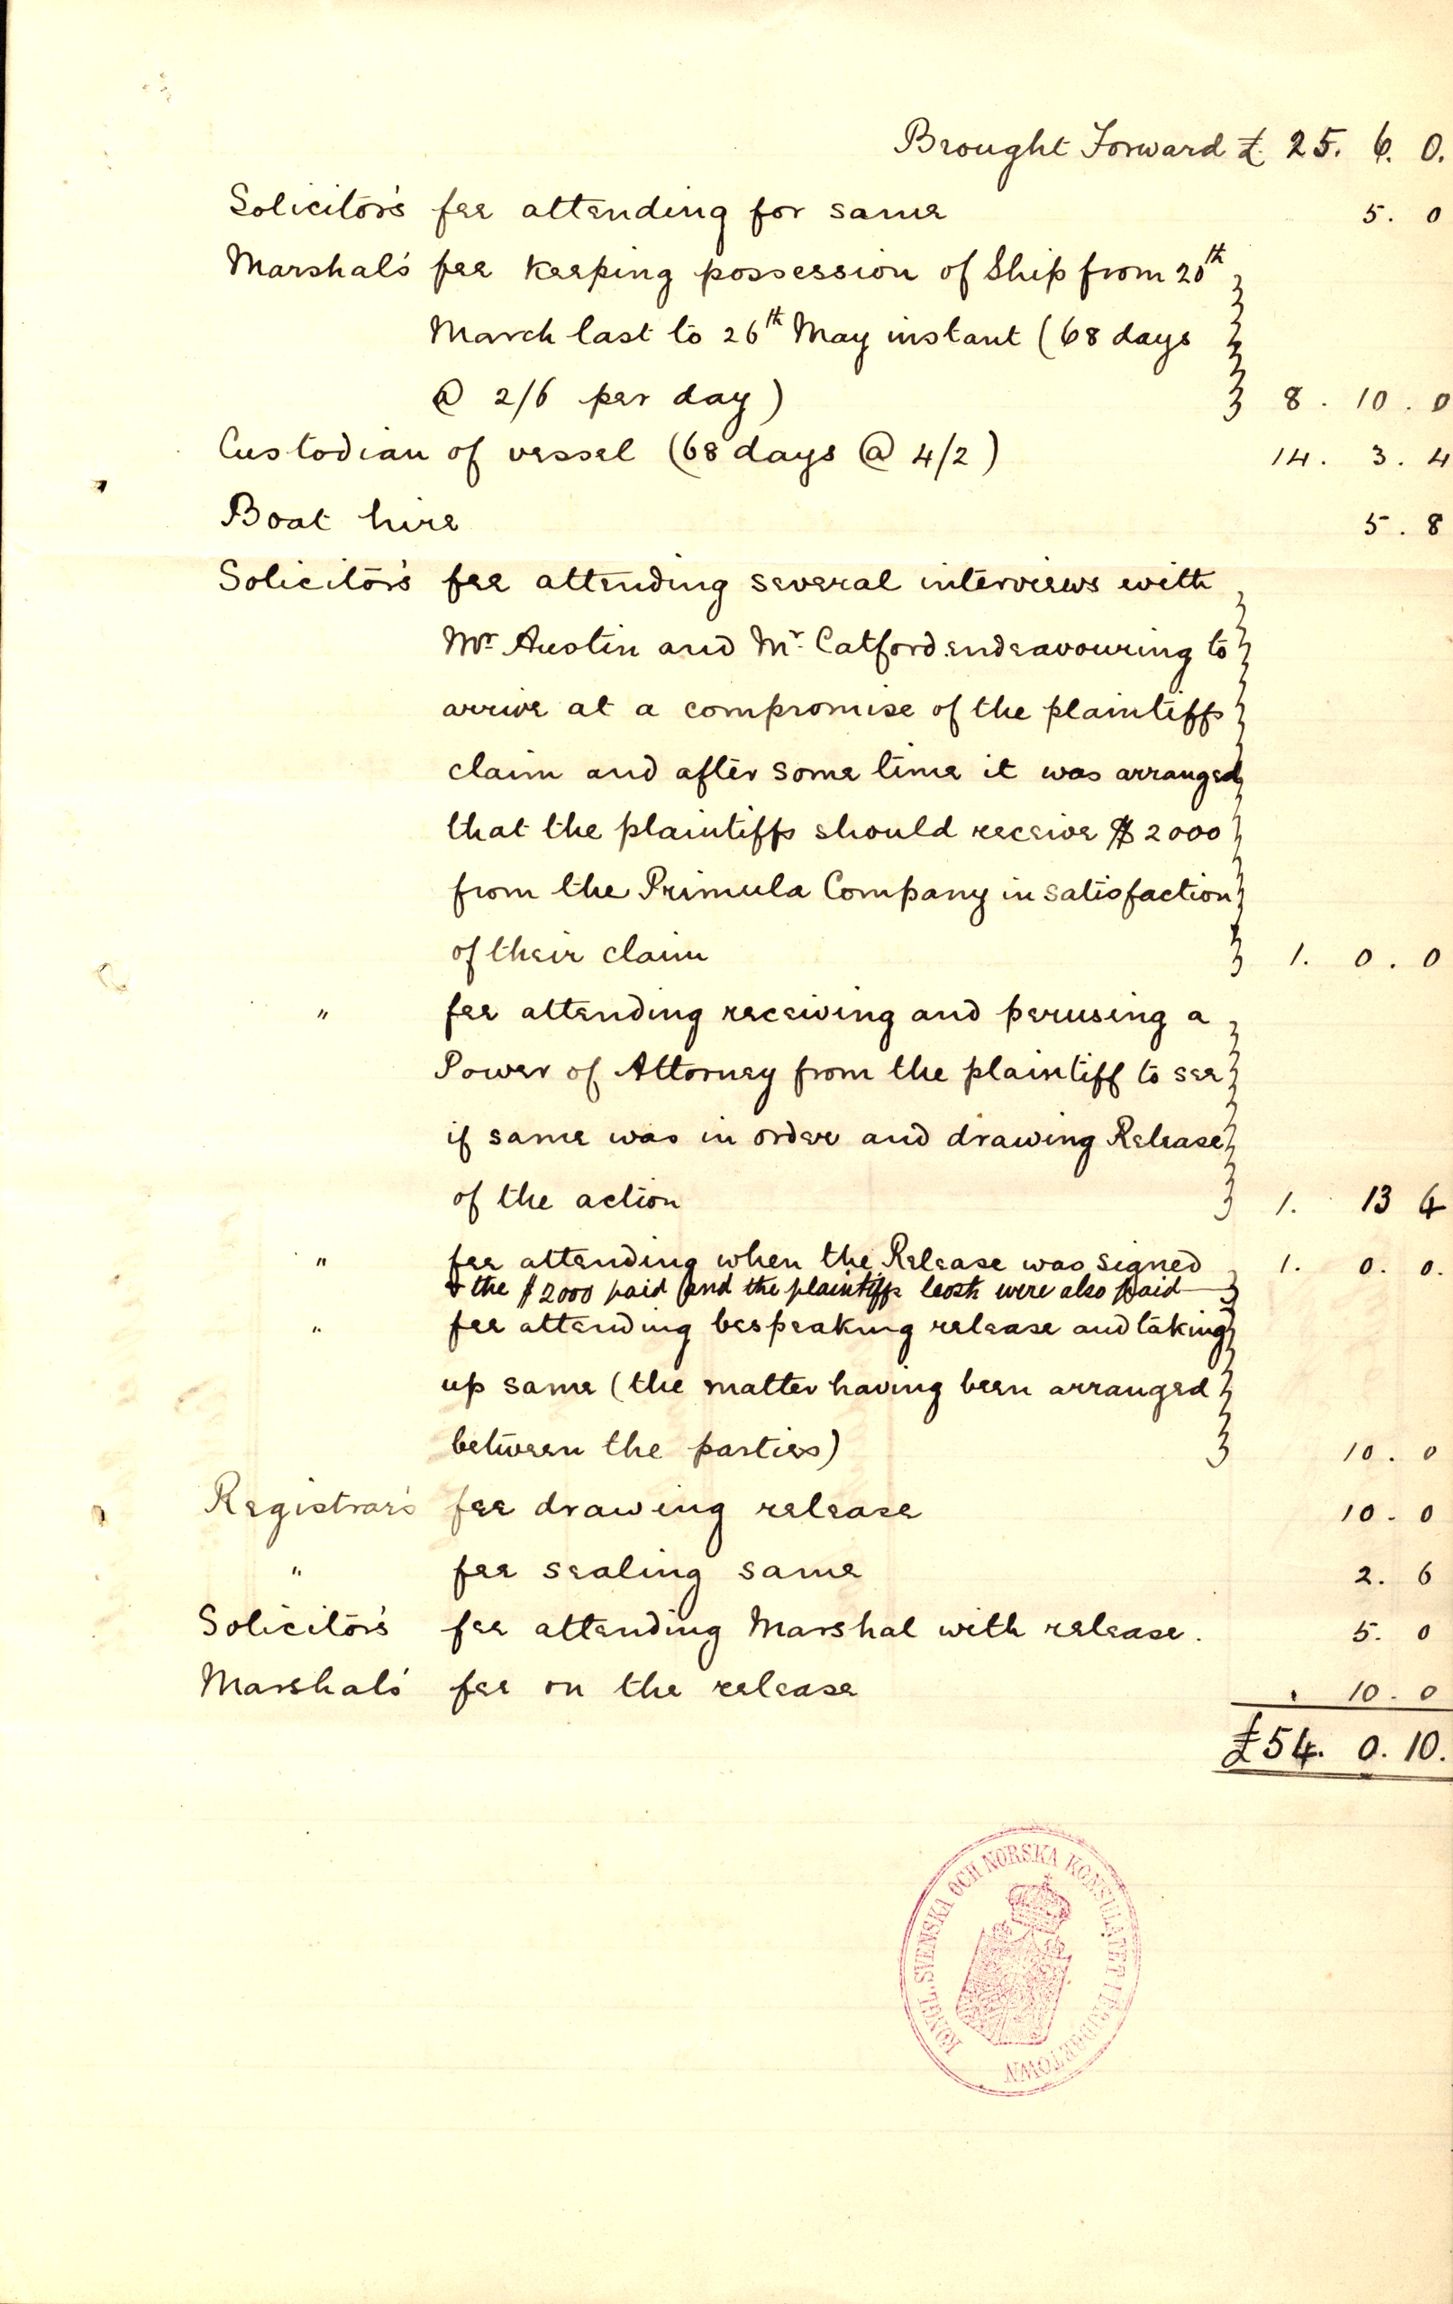 Brought Forward £ 25. 6. 0.
Solicitor's fee attending for same 5. 0
Marshal's fee keeping possession of Ship from 20th
March last to 26th May instant (68 days
@ 2/6 per day) 8. 10. 0
Custodian of vessel (68 days @ 4/2) 14. 3. 4
Boat hire 5. 8
Solicitor's fee attending several interviews with
Mr. Austin and Mr. Catford endeavouring to
arrive at a compromise of the plaintiffs
claim and after some time it was arranged
that the plaintiffs should receive $2000
from the Primula Company in satisfaction
of their claim 1. 0. 0
" fee attending receiving and perusing a
Power of Attorney from the plaintiff to see
if same was in order and drawing Release
of the action 1. 13 4
" fee attending when the Release was signed 1. 0. 0.
& the $2000 paid and the plaintiffs costs were also paid
" fee attending bespeaking release and taking
up same (the matter having been arranged
between the parties) 10. 0
Registrar's fee drawing release 10. 0
" fee sealing same 2. 6
Solicitor's fee attending Marshal with release. 5. 0
Marshal's fee on the release 10. 0
£54. 0. 10.
KONGL. SVENSKA OCH NORSKA KONSULATET I BRIDGETOWN